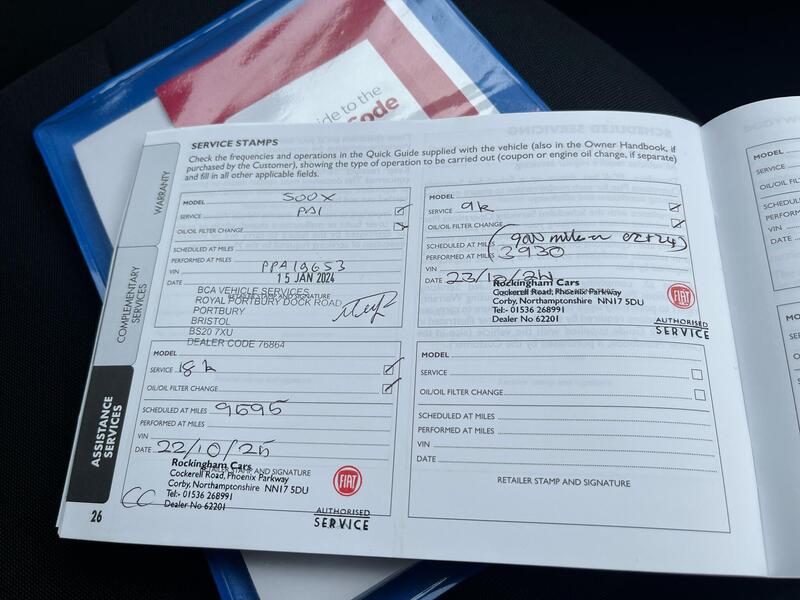 ide to the
Code
SERVICE STAMPS
Check the frequencies and operations in the Quick Guide supplied with the vehicle (also in the Owner Handbook, if
purchased by the Customer), showing the type of operation to be carried out (coupon or engine oil change, if separate)
and fill in all other applicable fields.
WARRANTY
COMPLEMENTARY
SERVICES
ASSISTANCE
SERVICES
MODEL 500X
SERVICE PDI
OIL/OIL FILTER CHANGE
SCHEDULED AT MILES
PERFORMED AT MILES
VIN PPA19653
DATE 15 JAN 2024
BCA VEHICLE SERVICES
RETAILER STAMP AND SIGNATURE
ROYAL PORTBURY DOCK ROAD
PORTBURY
BRISTOL
BS20 7XU
DEALER CODE 76864
MODEL
SERVICE 9k
OIL/OIL FILTER CHANGE
SCHEDULED AT MILES
PERFORMED AT MILES 3930
VIN
DATE
Rockingham Cars
Cockerell Road, Phoenix Parkway
Corby, Northamptonshire NN17 5DU
Tel:- 01536 268991
Dealer No 62201
FIAT
AUTHORISED
SERVICE
MODEL
SERVICE 18k
OIL/OIL FILTER CHANGE
SCHEDULED AT MILES 9595
PERFORMED AT MILES
VIN
DATE 22/10/25
Rockingham Cars
RETAILER STAMP AND SIGNATURE
Cockerell Road, Phoenix Parkway
Corby, Northamptonshire NN17 5DU
Tel:- 01536 268991
Dealer No 62201
CC
FIAT
AUTHORISED
SERVICE
MODEL
SERVICE
OIL/OIL FILTER CHANGE
SCHEDULED AT MILES
PERFORMED AT MILES
VIN
DATE
RETAILER STAMP AND SIGNATURE
26
MODEL
SERVICE
OIL/OIL F
SCHEDUL
PERFORM
VIN
DATE
MODEL
SERVICE
OIL/OI
SCHED
PERFO
VIN
DATE